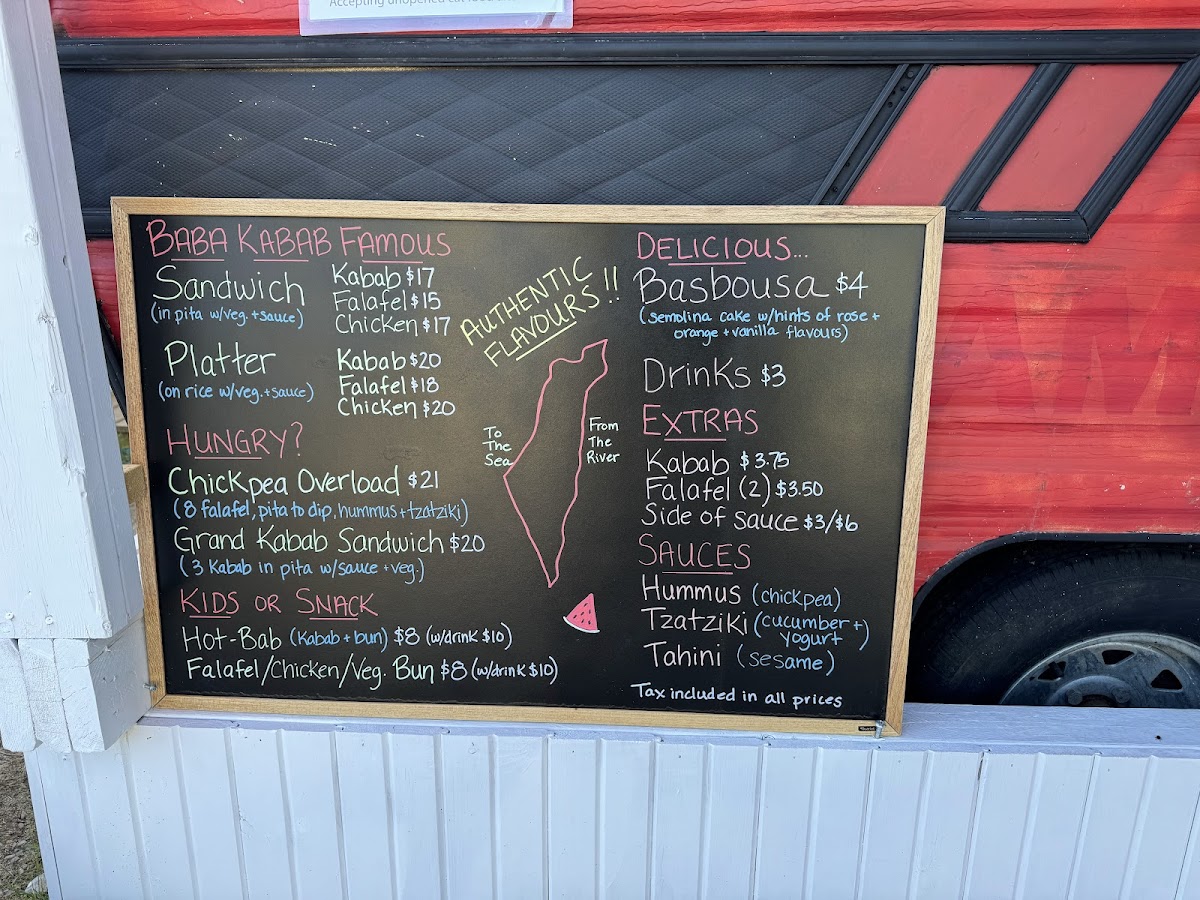 Accepting unopened
BABA KABAB FAMOUS
Sandwich
(in pita w/veg. + sauce)
Kabab $17
Falafel $15
Chicken $17
Platter
(on rice w/veg. + sauce)
Kabab $20
Falafel $18
Chicken $20
HUNGRY?
Chickpea Overload $21
(8 falafel, pita to dip, hummus + tzatziki)
Grand Kabab Sandwich $20
(3 Kabab in pita w/sauce + veg.)
KIDS OR SNACK
Hot-Bab (Kabab + bun) $8 (w/drink $10)
Falafel/Chicken/Veg. Bun $8 (w/drink $10)
AUTHENTIC
FLAVOURS!!
To
The
Sea
From
The
River
DELICIOUS...
Basbousa $4
(semolina cake w/hints of rose +
orange + vanilla flavours)
Drinks $3
EXTRAS
Kabab $3.75
Falafel (2) $3.50
Side of sauce $3/$6
SAUCES
Hummus (chickpea)
Tzatziki (cucumber +
yogurt)
Tahini (sesame)
Tax included in all prices
AM